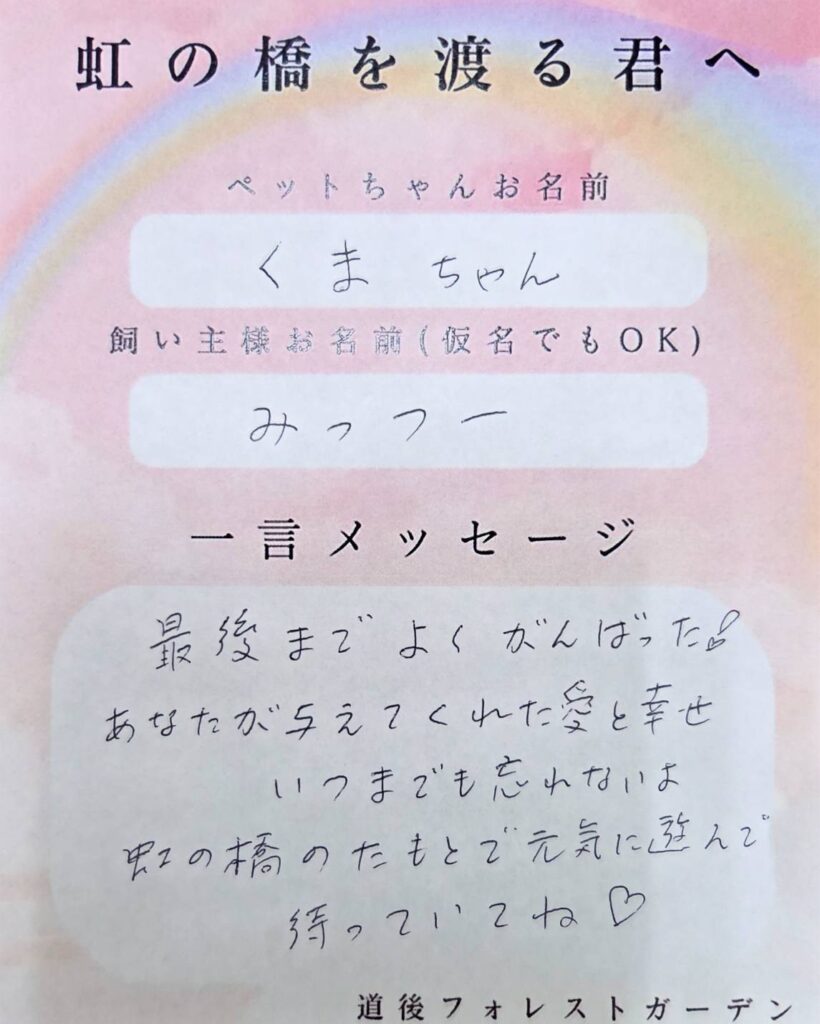 虹の橋を渡る君へ
ペットちゃんお名前
くまちゃん
飼い主様お名前(仮名でもOK)
みっつー
一言メッセージ
最後までよくがんばった!
あなたが与えてくれた愛と幸せ
いつまでも忘れないよ
虹の橋のたもとで元気に遊んで
待っていてね♡
道後フォレストガーデン